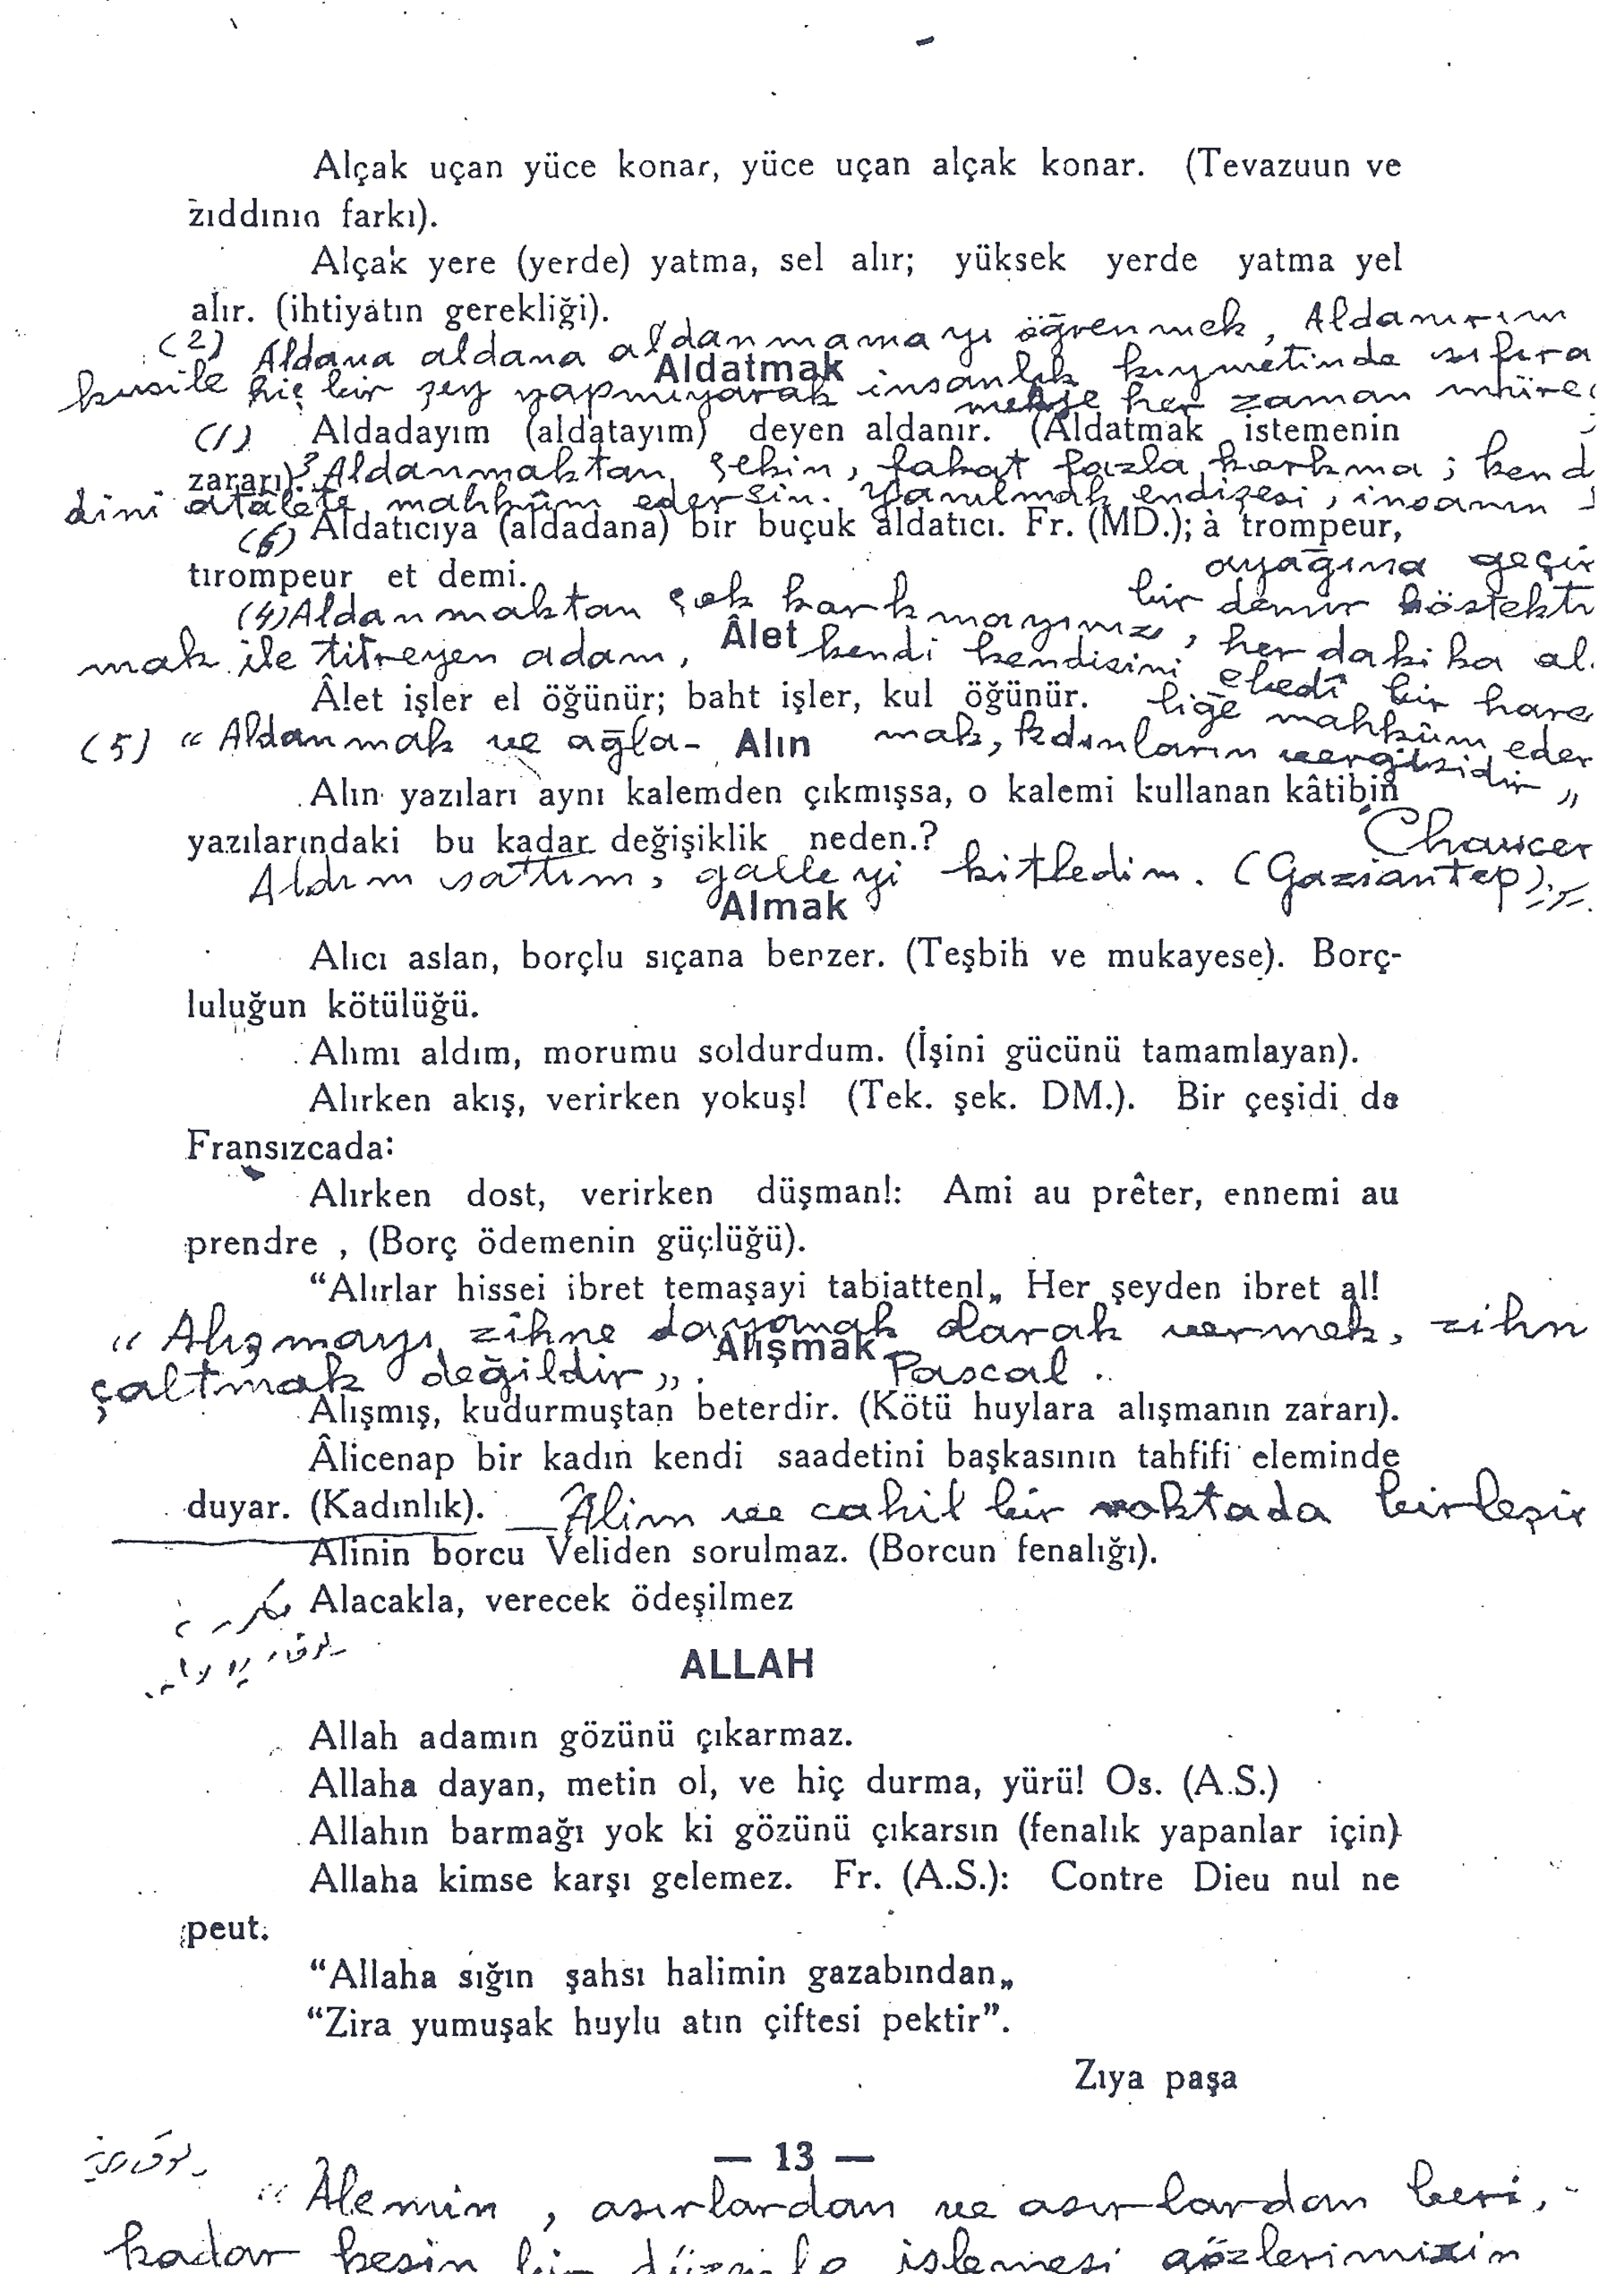 Alçak uçan yüce konar, yüce uçan alçak konar. (Tevazuun ve
zıddının farkı).
Alçak yere (yerde) yatma, sel alır; yüksek yerde yatma yel
alır. (ihtiyatın gerekliği).
(2) Aldana aldana aldanmamayı öğrenmek, Aldanırım
Aldatmak
kusile hiç bir şey yapmıyarak insanlık kıymetinde sıfıra
her zaman
(1) Aldadayım (aldatayım) deyen aldanır. (Aldatmak istemenin
zararı).
3 Aldanmaktan çekin, fakat fazla korkma; kend
dini atâlete mahkûm edersin. Yanılmak endişesi, insanın
(6) Aldatıcıya (aldadana) bir buçuk aldatıcı. Fr. (MD.); à trompeur,
tırompeur et demi.
ayağına geçir
bir demir köstekti
(4) Aldanmaktan çok korkmayınız, her dakika al
Âlet
mak ile titreyen adam, kendi kendisini ebedî bir hare
Âlet işler el öğünür; baht işler, kul öğünür.
liğe mahkûm eder
(5) “Aldanmak ve ağla- mak, kadınların vergisidir”
Alın
Alın yazıları aynı kalemden çıkmışsa, o kalemi kullanan kâtibin
yazılarındaki bu kadar değişiklik neden.?
Chaucer
Aldım sattım, galleyi kitledim. (Gaziantep).
Almak
Alıcı aslan, borçlu sıçana benzer. (Teşbih ve mukayese). Borç-
luluğun kötülüğü.
Alımı aldım, morumu soldurdum. (İşini gücünü tamamlayan).
Alırken akış, verirken yokuş! (Tek. şek. DM.). Bir çeşidi de
Fransızcada:
Alırken dost, verirken düşman!: Ami au prêter, ennemi au
prendre , (Borç ödemenin güçlüğü).
“Alırlar hissei ibret temaşayi tabiatten!„ Her şeyden ibret al!
“Alışmayı zihne dayanak olarak vermek, zihn
Alışmak
çaltmak değildir”. Pascal.
Alışmış, kudurmuştan beterdir. (Kötü huylara alışmanın zararı).
Âlicenap bir kadın kendi saadetini başkasının tahfifi eleminde
duyar. (Kadınlık).
Âlim ve cahil bir noktada birleşir
Alinin borcu Veliden sorulmaz. (Borcun fenalığı).
Alacakla, verecek ödeşilmez
ALLAH
Allah adamın gözünü çıkarmaz.
Allaha dayan, metin ol, ve hiç durma, yürü! Os. (A.S.)
Allahın barmağı yok ki gözünü çıkarsın (fenalık yapanlar için)
Allaha kimse karşı gelemez. Fr. (A.S.): Contre Dieu nul ne
peut.
“Allaha sığın şahsı halimin gazabından„
“Zira yumuşak huylu atın çiftesi pektir”.
Zıya paşa
— 13 —
“Âlemin, asırlardan ve asırlardan beri,
kadar kesin bir düzenle işlemesi gözlerimizin